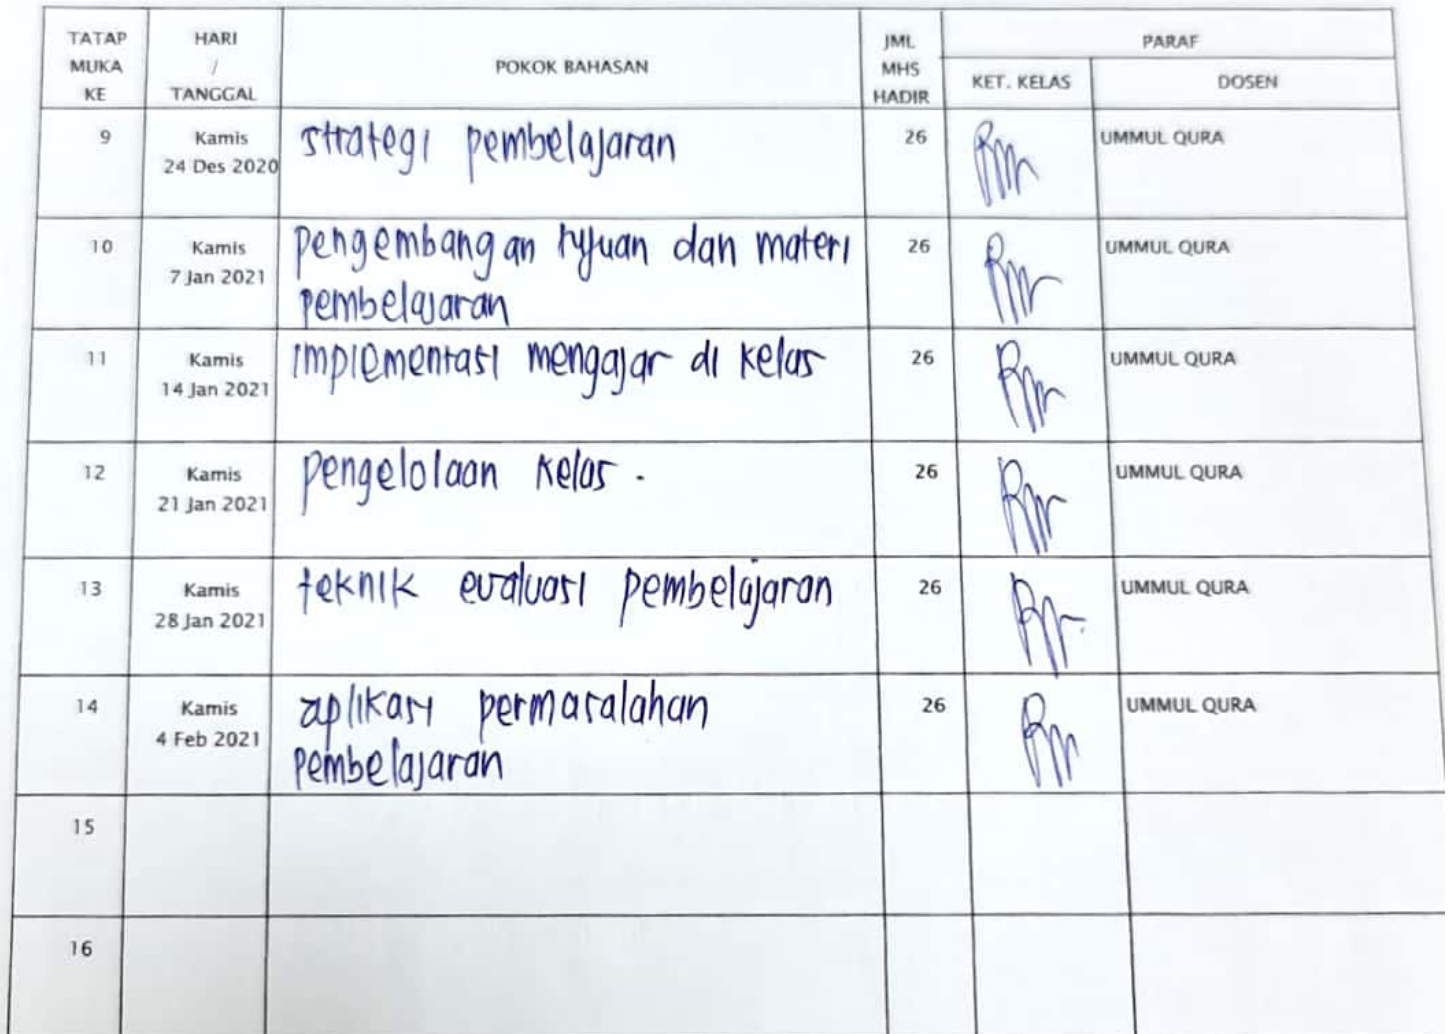 TATAP MUKA KE
HARI / TANGGAL
POKOK BAHASAN
JML MHS HADIR
PARAF
KET. KELAS
DOSEN
9
Kamis
24 Des 2020
strategi pembelajaran
26
UMMUL QURA
10
Kamis
7 Jan 2021
pengembangan tujuan dan materi
pembelajaran
26
UMMUL QURA
11
Kamis
14 Jan 2021
implementasi mengajar di kelas
26
UMMUL QURA
12
Kamis
21 Jan 2021
pengelolaan kelas.
26
UMMUL QURA
13
Kamis
28 Jan 2021
teknik evaluasi pembelajaran
26
UMMUL QURA
14
Kamis
4 Feb 2021
aplikasi permasalahan
pembelajaran
26
UMMUL QURA
15
16